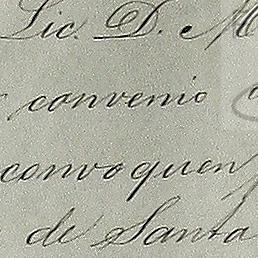 Lic. D. M
convenio
convoquen
de Santa